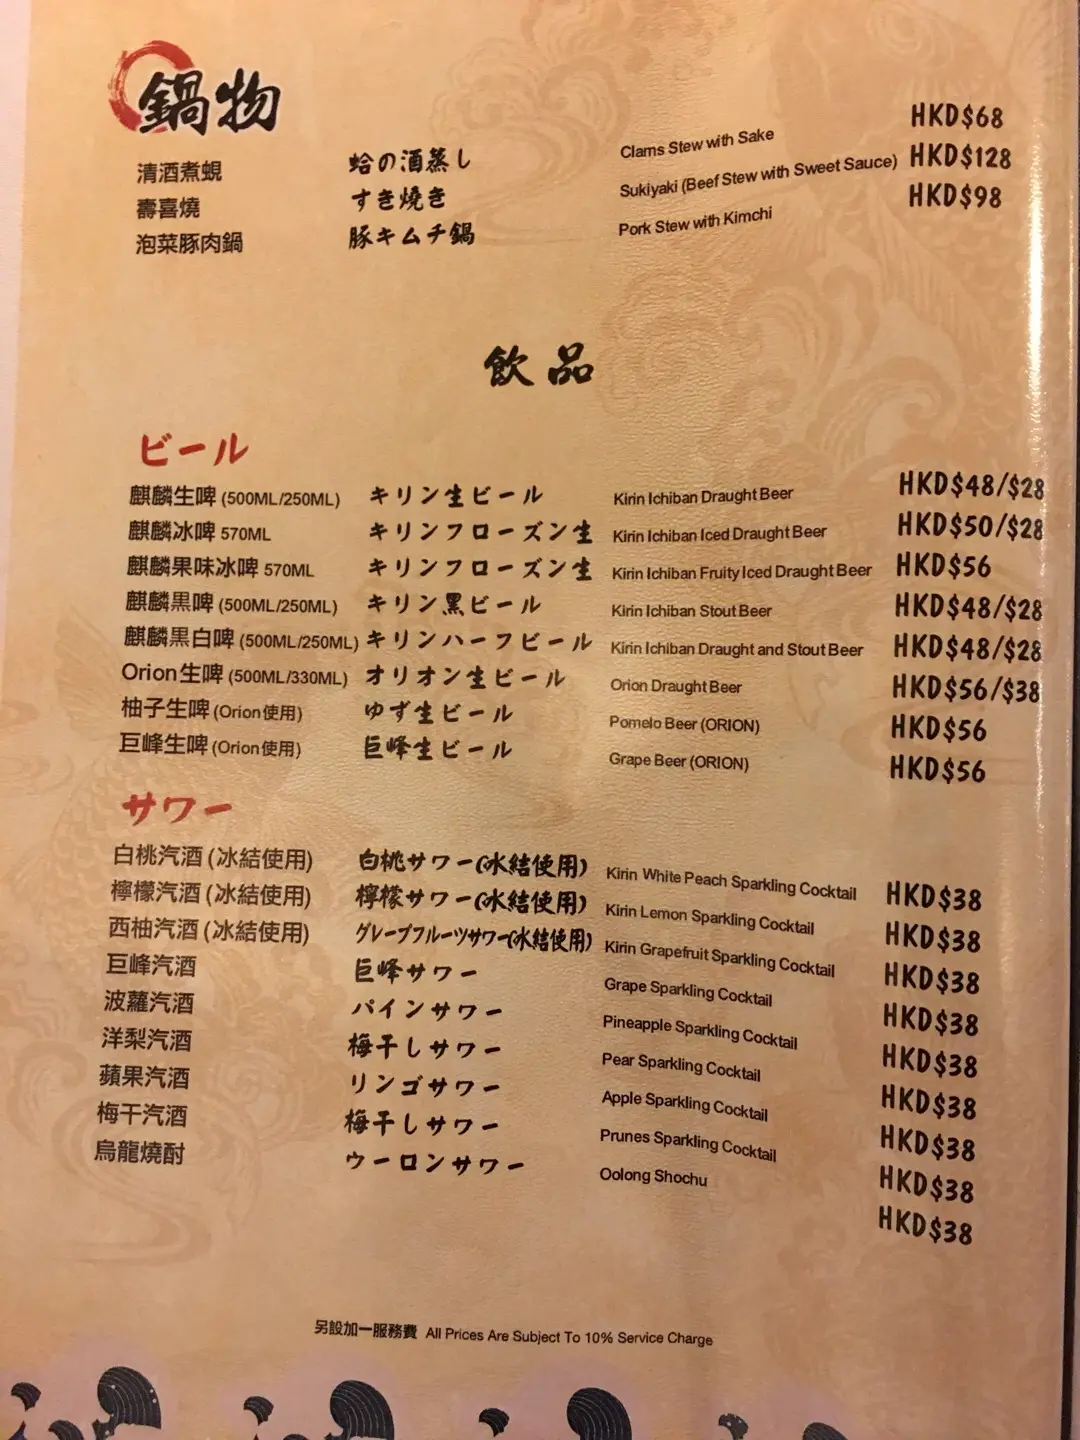 鍋物
清酒煮蜆 蛤の酒蒸し Clams Stew with Sake HKD$68
壽喜燒 すき焼き Sukiyaki (Beef Stew with Sweet Sauce) HKD$128
泡菜豚肉鍋 豚キムチ鍋 Pork Stew with Kimchi HKD$98
飲品
ビール
麒麟生啤 (500ML/250ML) キリン生ビール Kirin Ichiban Draught Beer HKD$48/$28
麒麟冰啤 570ML キリンフローズン生 Kirin Ichiban Iced Draught Beer HKD$50/$28
麒麟果味冰啤 570ML キリンフローズン生 Kirin Ichiban Fruity Iced Draught Beer HKD$56
麒麟黒啤 (500ML/250ML) キリン黒ビール Kirin Ichiban Stout Beer HKD$48/$28
麒麟黒白啤 (500ML/250ML) キリンハーフビール Kirin Ichiban Draught and Stout Beer HKD$48/$28
Orion生啤 (500ML/330ML) オリオン生ビール Orion Draught Beer HKD$56/$38
柚子生啤 (Orion使用) ゆず生ビール Pomelo Beer (ORION) HKD$56
巨峰生啤 (Orion使用) 巨峰生ビール Grape Beer (ORION) HKD$56
サワー
白桃汽酒 (冰結使用) 白桃サワー(氷結使用) Kirin White Peach Sparkling Cocktail HKD$38
檸檬汽酒 (冰結使用) 檸檬サワー(氷結使用) Kirin Lemon Sparkling Cocktail HKD$38
西柚汽酒 (冰結使用) グレープフルーツサワー(氷結使用) Kirin Grapefruit Sparkling Cocktail HKD$38
巨峰汽酒 巨峰サワー Grape Sparkling Cocktail HKD$38
波蘿汽酒 パインサワー Pineapple Sparkling Cocktail HKD$38
洋梨汽酒 梅干しサワー Pear Sparkling Cocktail HKD$38
蘋果汽酒 リンゴサワー Apple Sparkling Cocktail HKD$38
梅干汽酒 梅干しサワー Prunes Sparkling Cocktail HKD$38
烏龍燒酎 ウーロンサワー Oolong Shochu HKD$38
另設加一服務費 All Prices Are Subject To 10% Service Charge